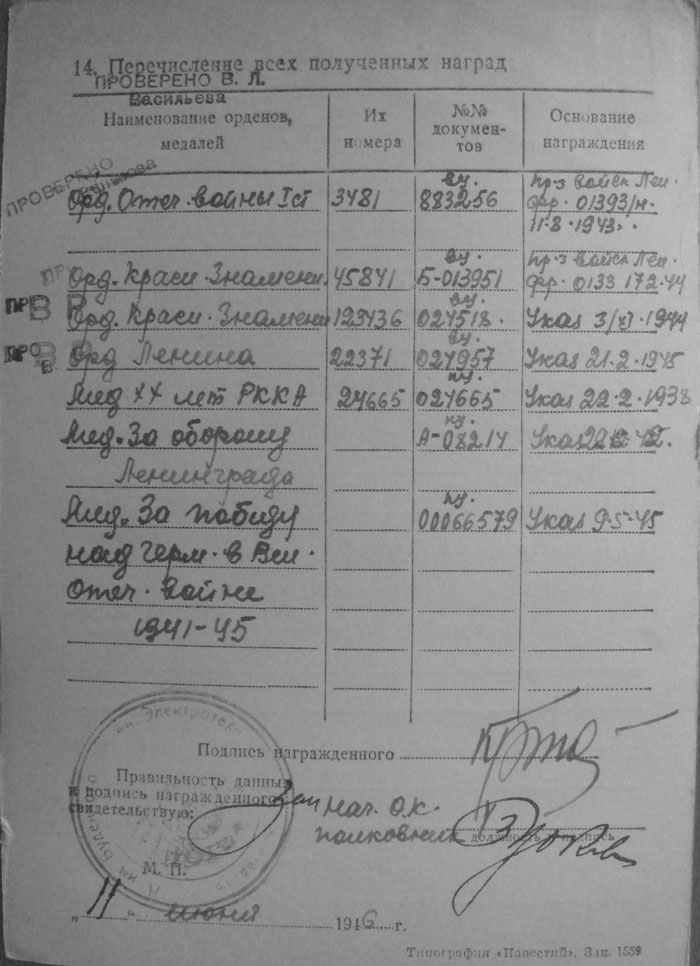 14. Перечисление всех полученных наград
ПРОВЕРЕНО В. Л.
Васильева
Наименование орденов, медалей
Их номера
№№ документов
Основание награждения
ПРОВЕРЕНО
Орд. Отеч. войны I ст 3481 вр. 883256 Пр-з войск Лен.
фр. 01393/н.
11.8.1943г.
Орд. Красн. Знамени 45841 вр. Б-013951 Пр-з войск Лен.
фр. 0133 17.2.44
Орд. Красн. Знамени 123436 вр. 024518 Указ 3/XI-1944
Орд Ленина 22371 вр. 024957 Указ 21.2.1945
Мед XX лет РККА 24665 024665 Указ 22.2.1938
Мед. За оборону А-08214 Указ
Ленинграда
Мед. За победу 00066579 Указ 9.5.45
над Герм. в Вел.
Отеч. войне
1941-45
Подпись награжденного
Правильность данных
и подпись награжденного
свидетельствую:
Зам Нач. О.К.
полковник
должность и подпись
М. П.
Электротех-
им Буденного
„11" июня 1946 г.
Типография «Известий». Зак. 1559